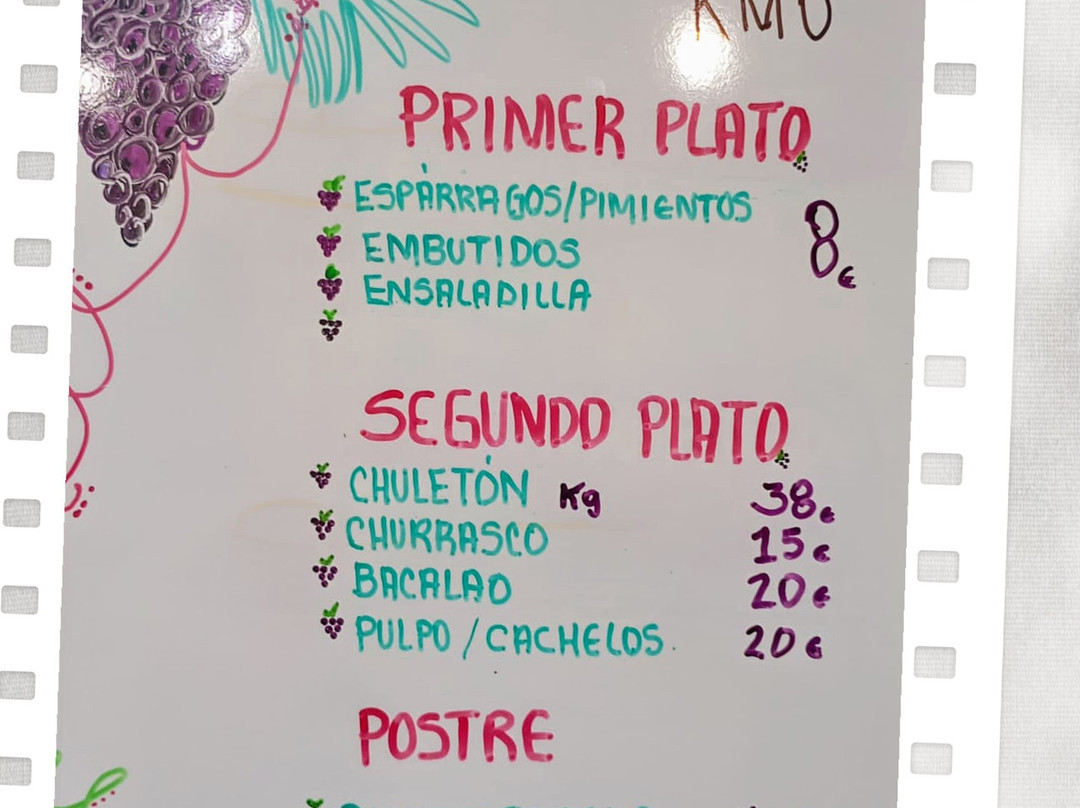 KM0
PRIMER PLATO
ESPÁRRAGOS/PIMIENTOS
EMBUTIDOS 8€
ENSALADILLA
SEGUNDO PLATO
CHULETÓN Kg 38€
CHURRASCO 15€
BACALAO 20€
PULPO / CACHELOS. 20€
POSTRE